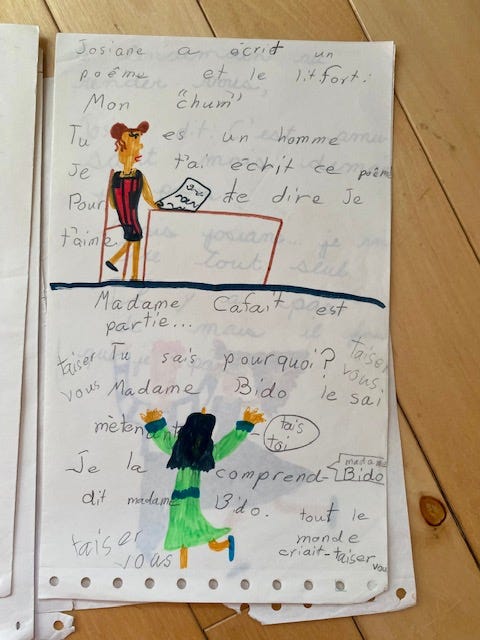 Josiane a écrit un
poême et le lit fort:
Mon "chum"
Tu es un homme
Je t'ai écrit ce poême
Pour te dire Je
t'aime
Madame Cafait est
partie...
Tu sais pourquoi?
taiser vous
taiser vous
Madame Bido le sai
mètenant
tais toi
Je la comprend
madame Bido
dit madame Bido.
tout le
monde
criait-taiser vou
taiser vous